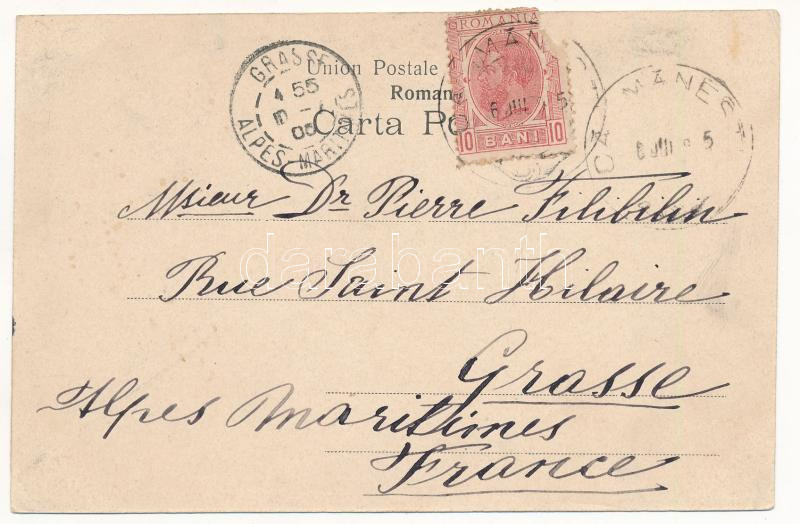 Union Postale
Roman
Carta Po
ROMANIA
10 BANI 10
GRASSE
4 55
05
ALPES-MARITIMES
CA MANEC
6 5
Msieur Dr Pierre Filibilin
Rue Saint Hilaire
Grasse
Alpes Maritimes
France
darabanth